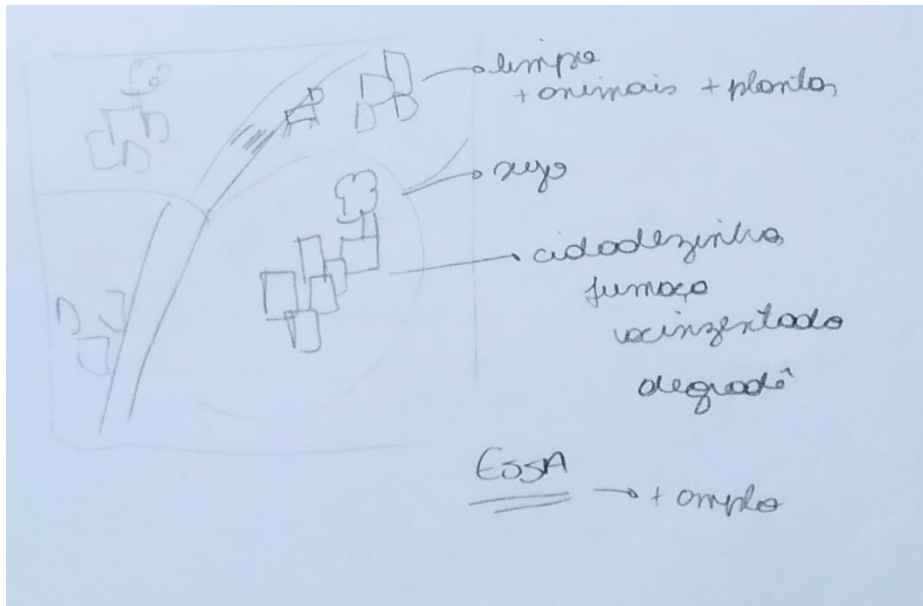 limpo
+ animais + plantas
sujo
cidadezinha
fumaça
acinzentado
degradê
ESSA
→ + amplo